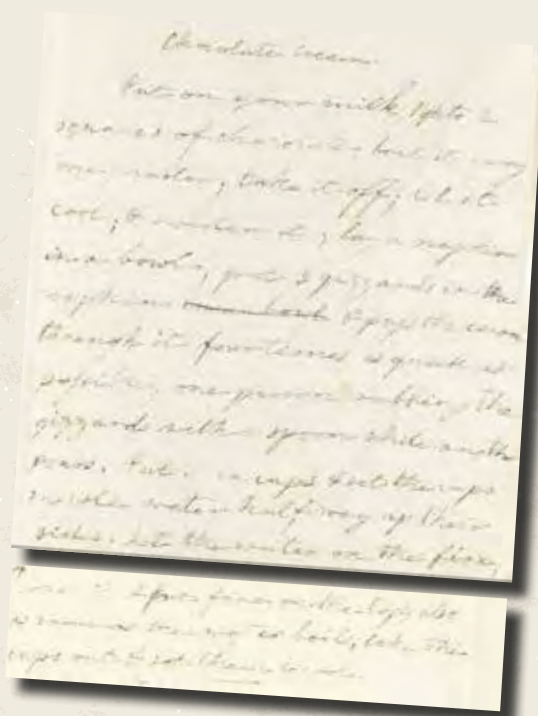 Chocolate Cream.
Put on your milk, 1 qt to 2
squares of chocolate; boil it away
one quarter; take it off; let it
cool, & sweeten it; lay a napkin
in a bowl, put 3 gizzards in the
napkin & pass the cream
through it four times as quick as
possible, one person rubbing the
gizzards with a spoon while another
pours. Put it in cups & set the cups
in water half way up their
sides. Set the water on the fire,
& put fire on the top also
as soon as the boils, take the
cups out & set them to cool.